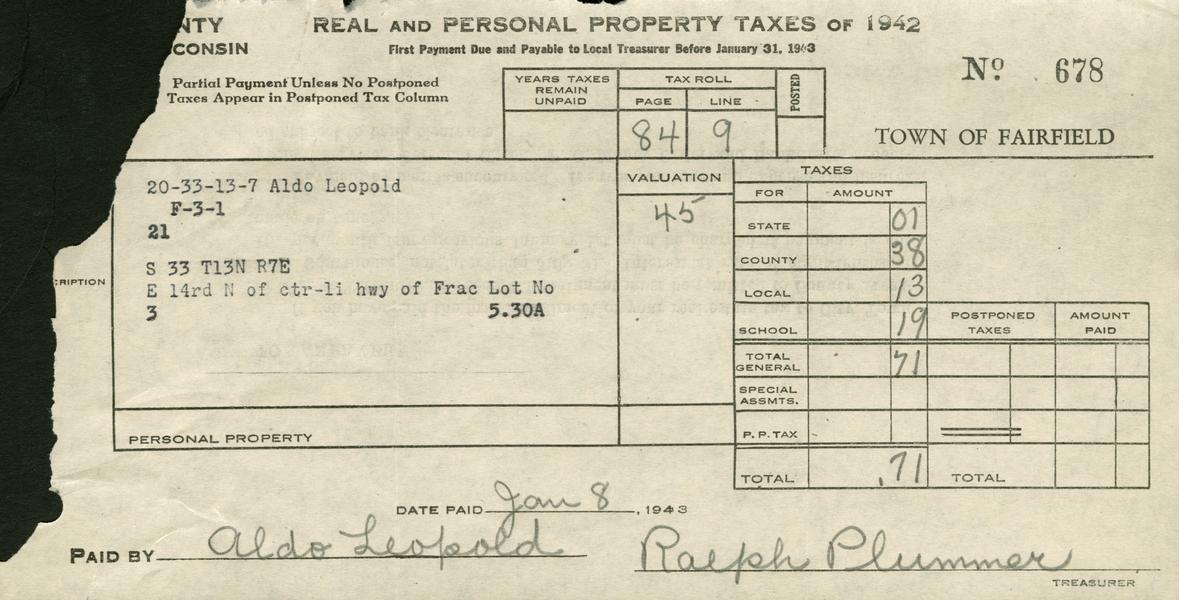 NTY REAL AND PERSONAL PROPERTY TAXES OF 1942
CONSIN First Payment Due and Payable to Local Treasurer Before January 31, 1943
Partial Payment Unless No Postponed
Taxes Appear in Postponed Tax Column
YEARS TAXES REMAIN UNPAID
TAX ROLL
PAGE LINE
84 9
POSTED
No 678
TOWN OF FAIRFIELD
20-33-13-7 Aldo Leopold
F-3-1
21
S 33 T13N R7E
RIPTION
E 14rd N of ctr-li hwy of Frac Lot No
3 5.30A
PERSONAL PROPERTY
VALUATION
45
TAXES
FOR AMOUNT
STATE 01
COUNTY 38
LOCAL 13
SCHOOL 19
POSTPONED TAXES
AMOUNT PAID
TOTAL GENERAL 71
SPECIAL ASSMTS.
P. P. TAX
TOTAL .71 TOTAL
DATE PAID Jan 8, 1943
PAID BY Aldo Leopold Ralph Plummer
TREASURER